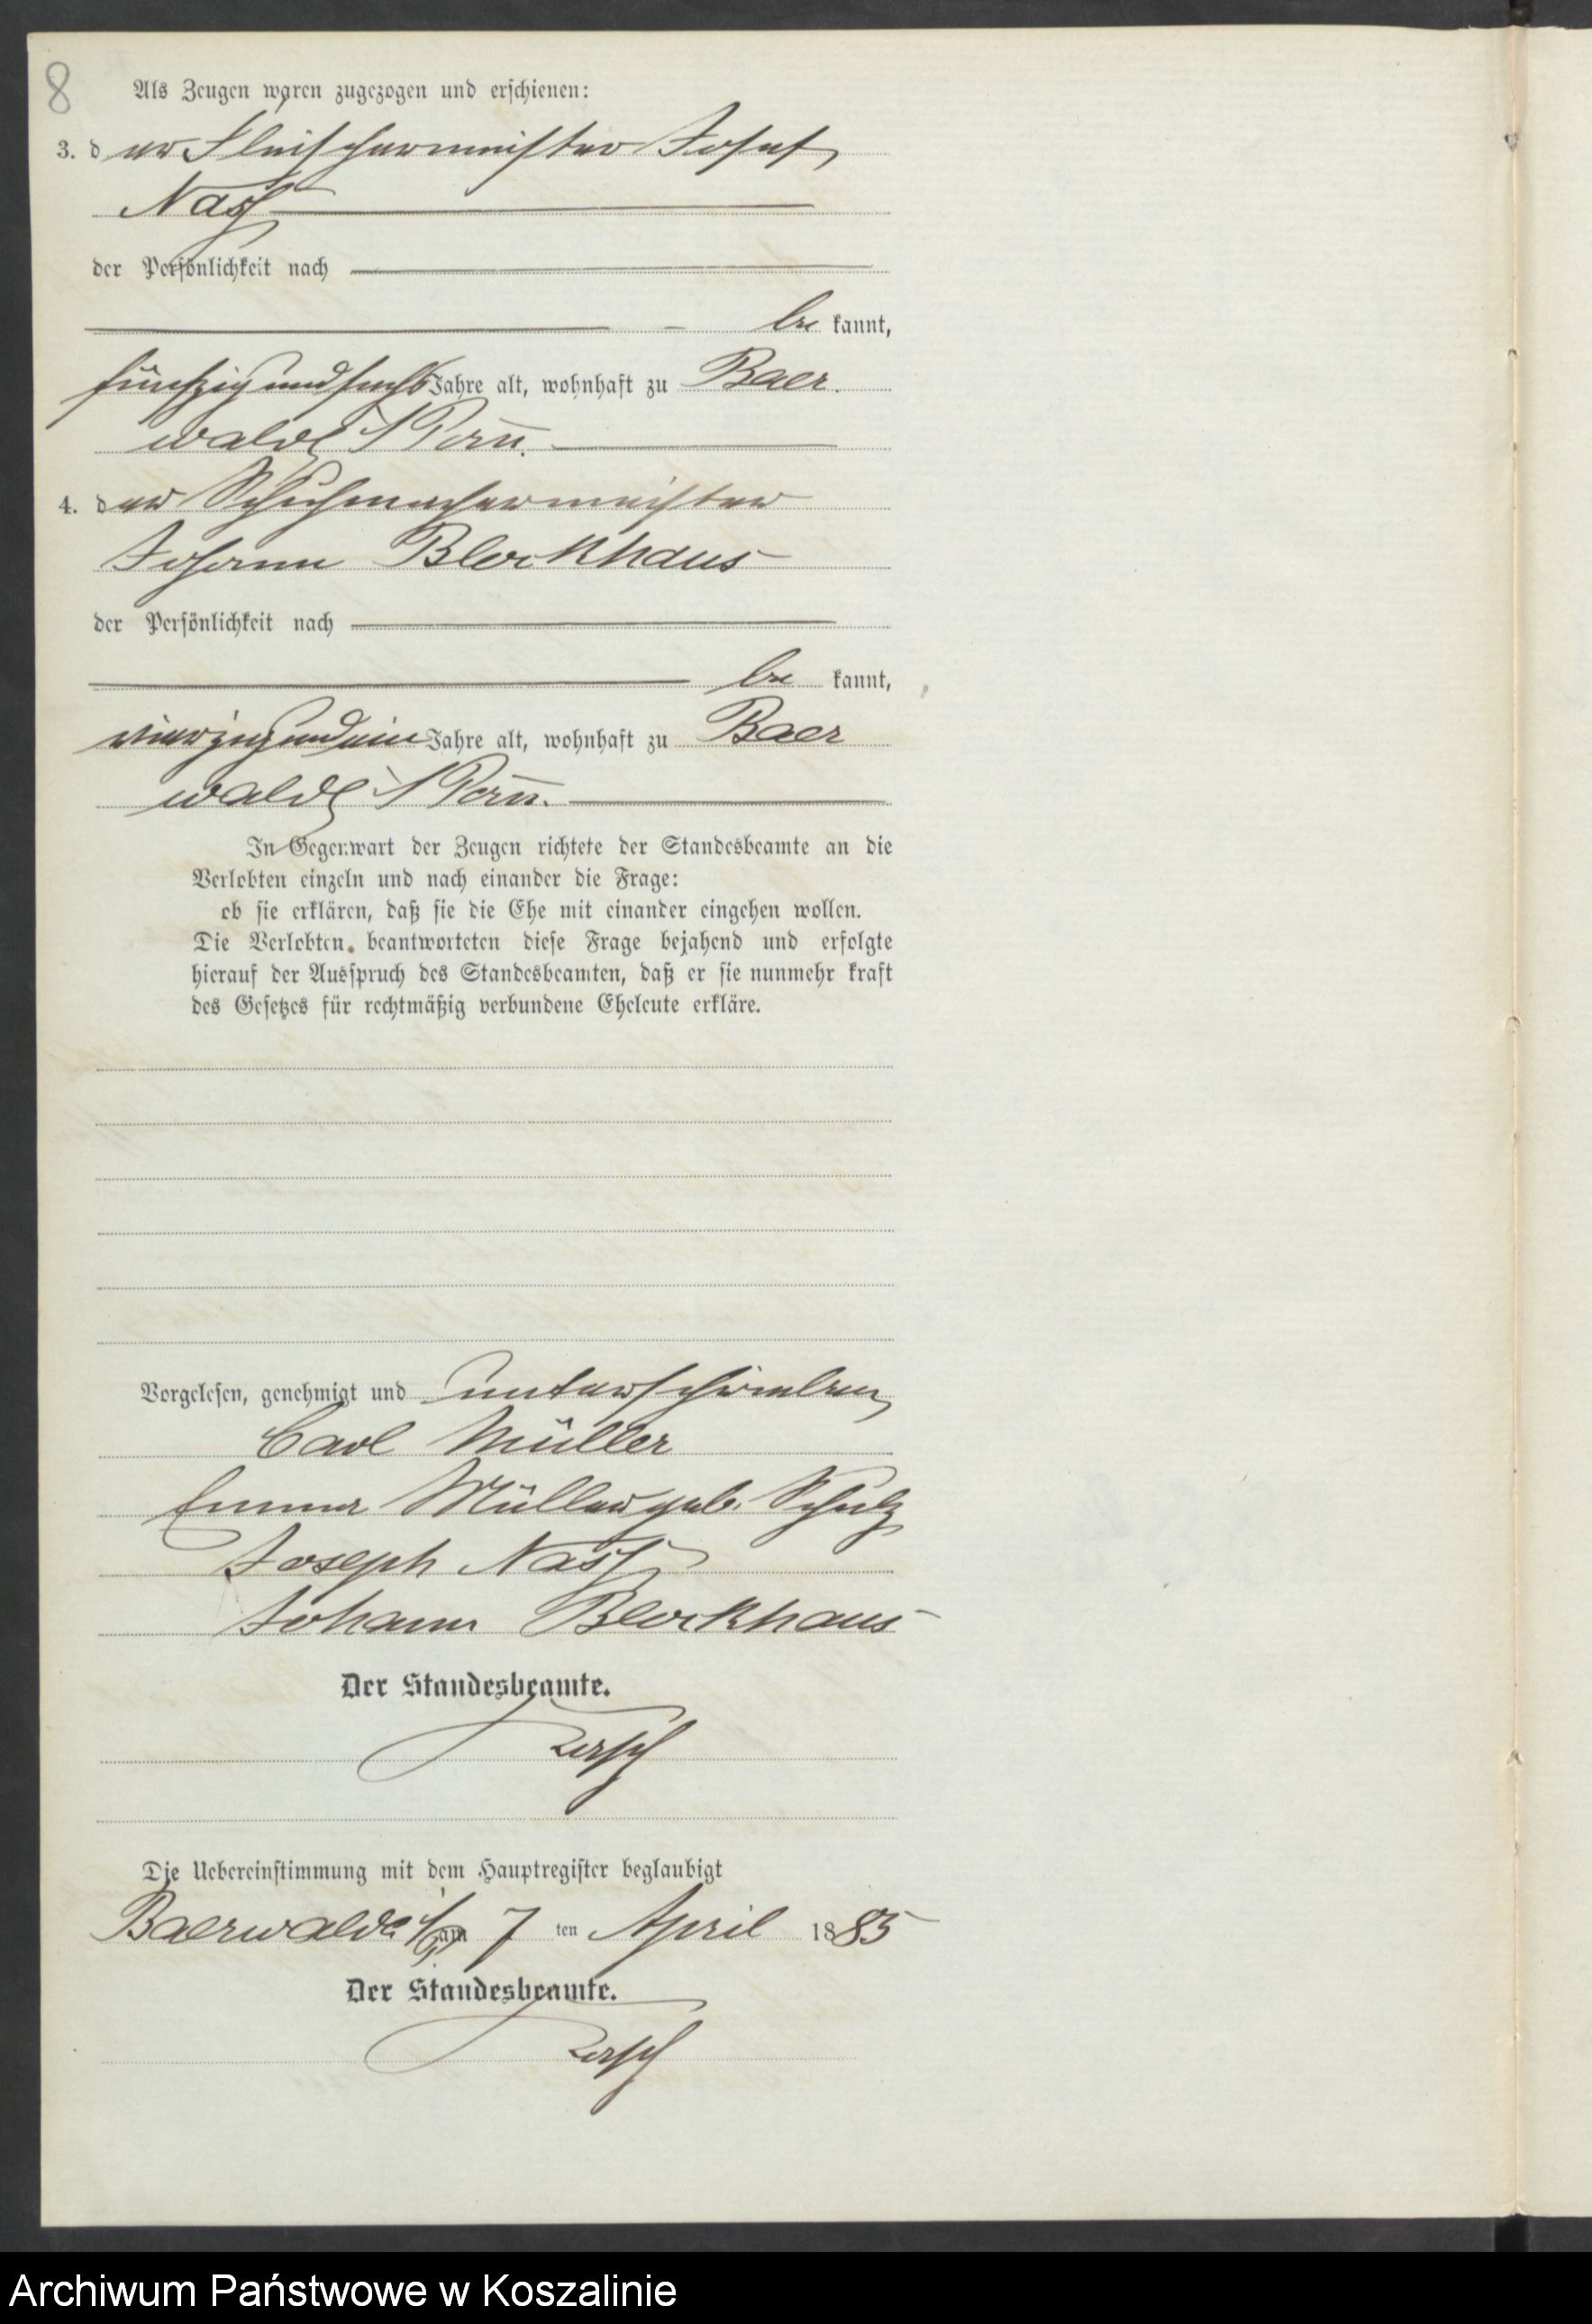 8
Als Zeugen waren zugezogen und erschienen:
3. der Fleischermeister Josef
Nass
der Persönlichkeit nach
be kannt,
fünfzig und sechs Jahre alt, wohnhaft zu Baer
walde i/Pom.
4. der Schuhmachermeister
Johann Block Khaus
der Persönlichkeit nach
be kannt,
vierzig und ein Jahre alt, wohnhaft zu Baer
walde i/Pom.
In Gegenwart der Zeugen richtete der Standesbeamte an die
Verlobten einzeln und nach einander die Frage:
ob sie erklären, daß sie die Ehe mit einander eingehen wollen.
Die Verlobten beantworteten diese Frage bejahend und erfolgte
hierauf der Ausspruch des Standesbeamten, daß er sie nunmehr kraft
des Gesetzes für rechtmäßig verbundene Eheleute erkläre.
Vorgelesen, genehmigt und unterschrieben
Carl Müller
Emma Müller geb. Schulz
Joseph Nass
Johann Blockhaus
Der Standesbeamte.
Die Uebereinstimmung mit dem Hauptregister beglaubigt
Baerwalde i/P. am 7 ten April 1885
Der Standesbeamte.
Archiwum Państwowe w Koszalinie